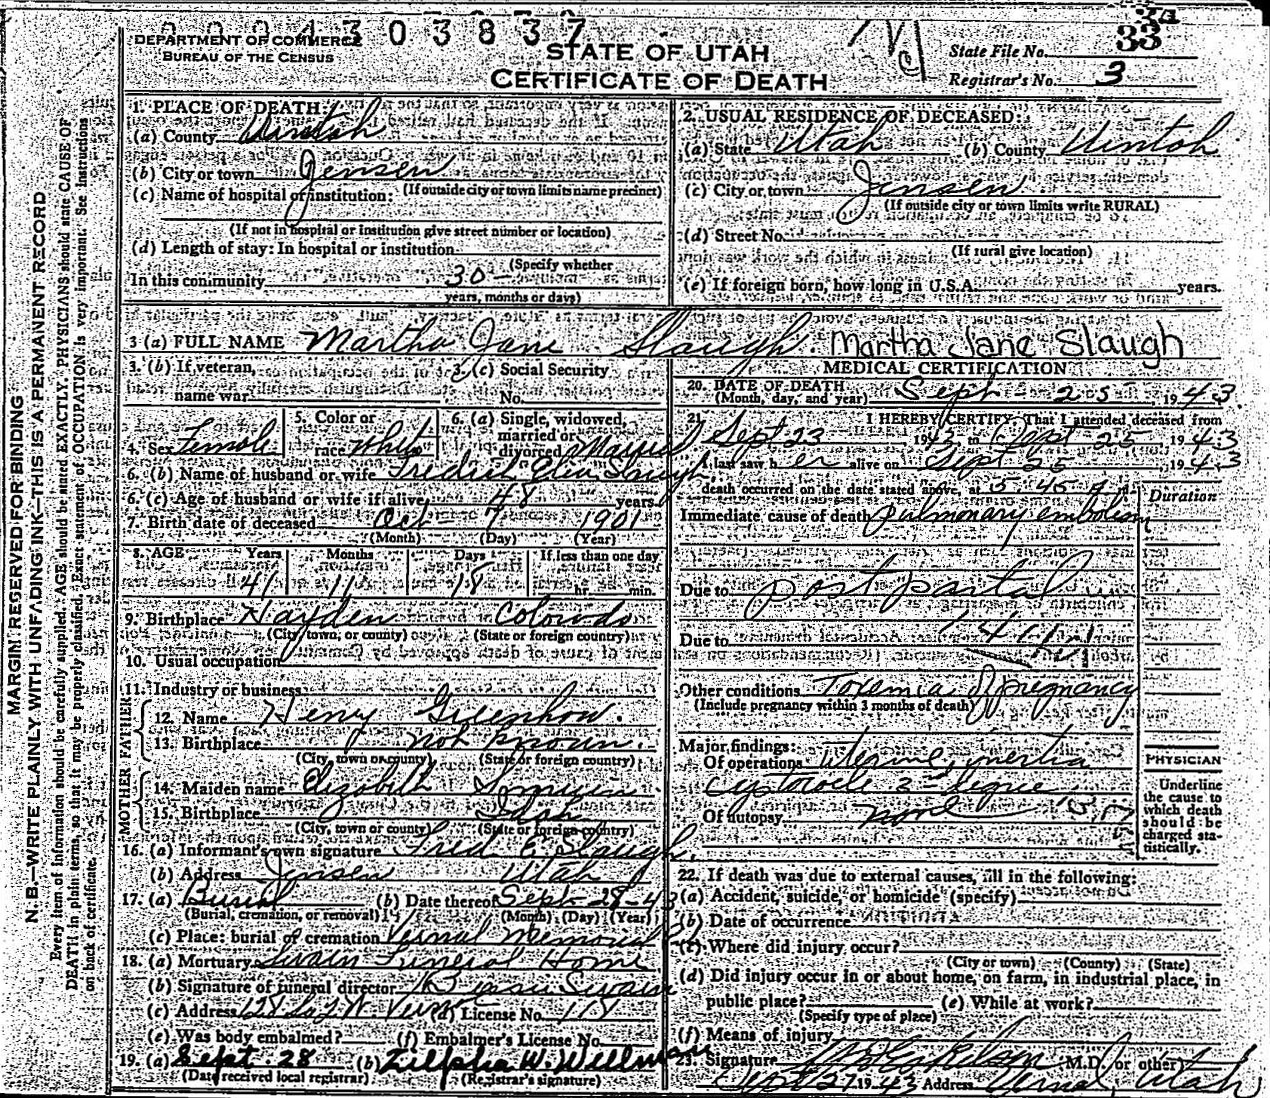 0004303837
DEPARTMENT OF COMMERCE
BUREAU OF THE CENSUS
STATE OF UTAH
CERTIFICATE OF DEATH
State File No. 33
Registrar's No. 3
MARGIN RESERVED FOR BINDING
N. B.—WRITE PLAINLY WITH UNFADING INK—THIS IS A PERMANENT RECORD
Every item of information should be carefully supplied. AGE should be stated EXACTLY. PHYSICIANS should state CAUSE OF
DEATH in plain terms, so that it may be properly classified. Exact statement of OCCUPATION is very important. See instructions
on back of certificate.
1. PLACE OF DEATH:
(a) County Uintah
(b) City or town Jensen
(If outside city or town limits name precinct)
(c) Name of hospital or institution:
(If not in hospital or institution give street number or location)
(d) Length of stay: In hospital or institution
(Specify whether
In this community 30 -
years, months or days)
2. USUAL RESIDENCE OF DECEASED:
(a) State Utah (b) County Uintah
(c) City or town Jensen
(If outside city or town limits write RURAL)
(d) Street No.
(If rural give location)
(e) If foreign born, how long in U.S.A. years.
3 (a) FULL NAME Martha Jane Slaugh. Martha Jane Slaugh
3. (b) If veteran,
name war
3. (c) Social Security
No.
4. Sex Female
5. Color or
race White
6. (a) Single, widowed,
married or
divorced Married
6. (b) Name of husband or wife Slaugh
6. (c) Age of husband or wife if alive 48 years
7. Birth date of deceased Oct - 7 1901
(Month) (Day) (Year)
8. AGE Years Months Days If less than one day
41 11 18 hr. min.
9. Birthplace Hayden Colorado
(City, town, or county) (State or foreign country)
10. Usual occupation
11. Industry or business
FATHER
12. Name Henry Greenhow.
13. Birthplace not known.
(City, town or county) (State or foreign country)
MOTHER
14. Maiden name Elizabeth
15. Birthplace
(City, town or county) (State or foreign country)
16. (a) Informant's own signature Fred E. Slaugh.
(b) Address Jensen Utah
17. (a) Burial (b) Date thereof Sept - 28 - 43
(Burial, cremation, or removal) (Month) (Day) (Year)
(c) Place: burial or cremation Vernal Memorial
18. (a) Mortuary Swain Funeral Home
(b) Signature of funeral director Swain
(c) Address Vernal (d) License No. 178
(e) Was body embalmed? (f) Embalmer's License No.
19. (a) Sept. 28 (b) Zilpha W. Wellman
(Date received local registrar) (Registrar's signature)
MEDICAL CERTIFICATION
20. DATE OF DEATH
(Month, day, and year) Sept - 25 - 1943.
21. I HEREBY CERTIFY: That I attended deceased from
Sept 23 1943 to Sept 25 1943
I last saw her alive on Sept 25, 1943
death occurred on the date stated above, at 5 45
Duration
Immediate cause of death Pulmonary embolism
Due to post partal
Due to
Other conditions Toxemia of pregnancy
(Include pregnancy within 3 months of death)
Major findings:
Of operations Uterine inertia
Cystocele 3 - degree
Of autopsy none
PHYSICIAN
Underline
the cause to
which death
should be
charged sta-
tistically.
22. If death was due to external causes, fill in the following:
(a) Accident, suicide, or homicide (specify)
(b) Date of occurrence
(c) Where did injury occur?
(City or town) (County) (State)
(d) Did injury occur in or about home, on farm, in industrial place, in
public place? (e) While at work?
(Specify type of place)
(f) Means of injury
Signature M.D. (or other)
Sept 27 1943 Address Vernal, Utah